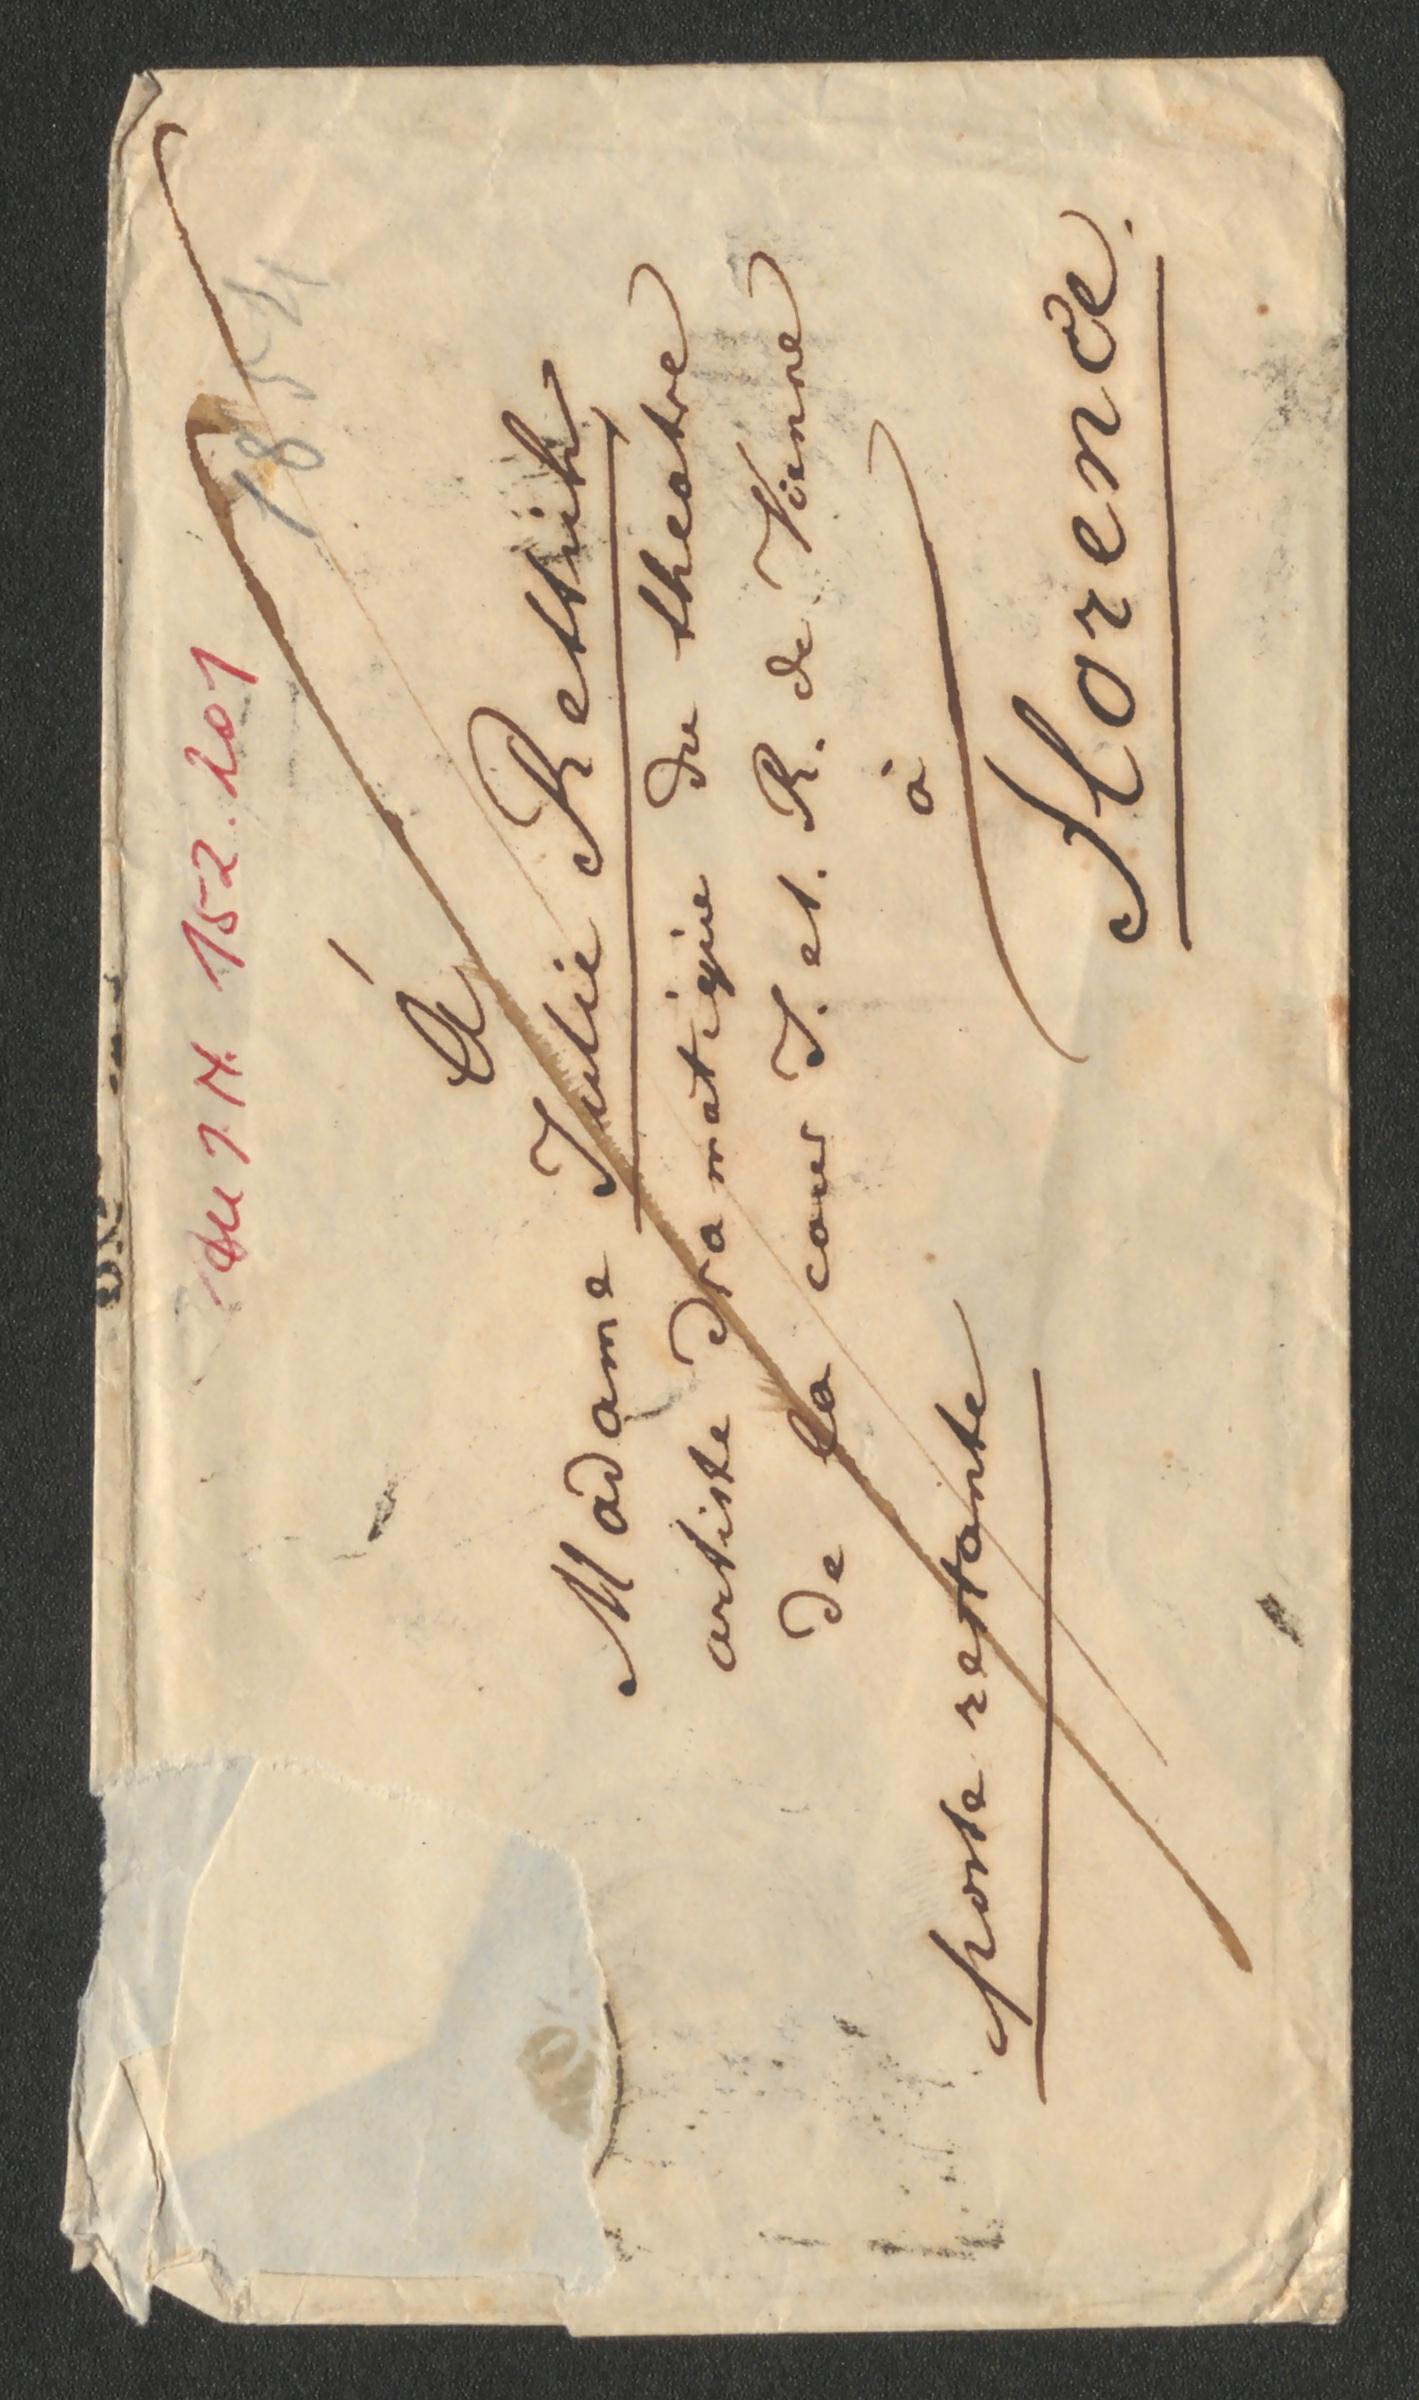 zu I N. 152.201
1854
À
Madame Julie Rettich
artiste dramatique du theatre
de la cour I. et. R. de Vienne
à
poste restante
Florence.